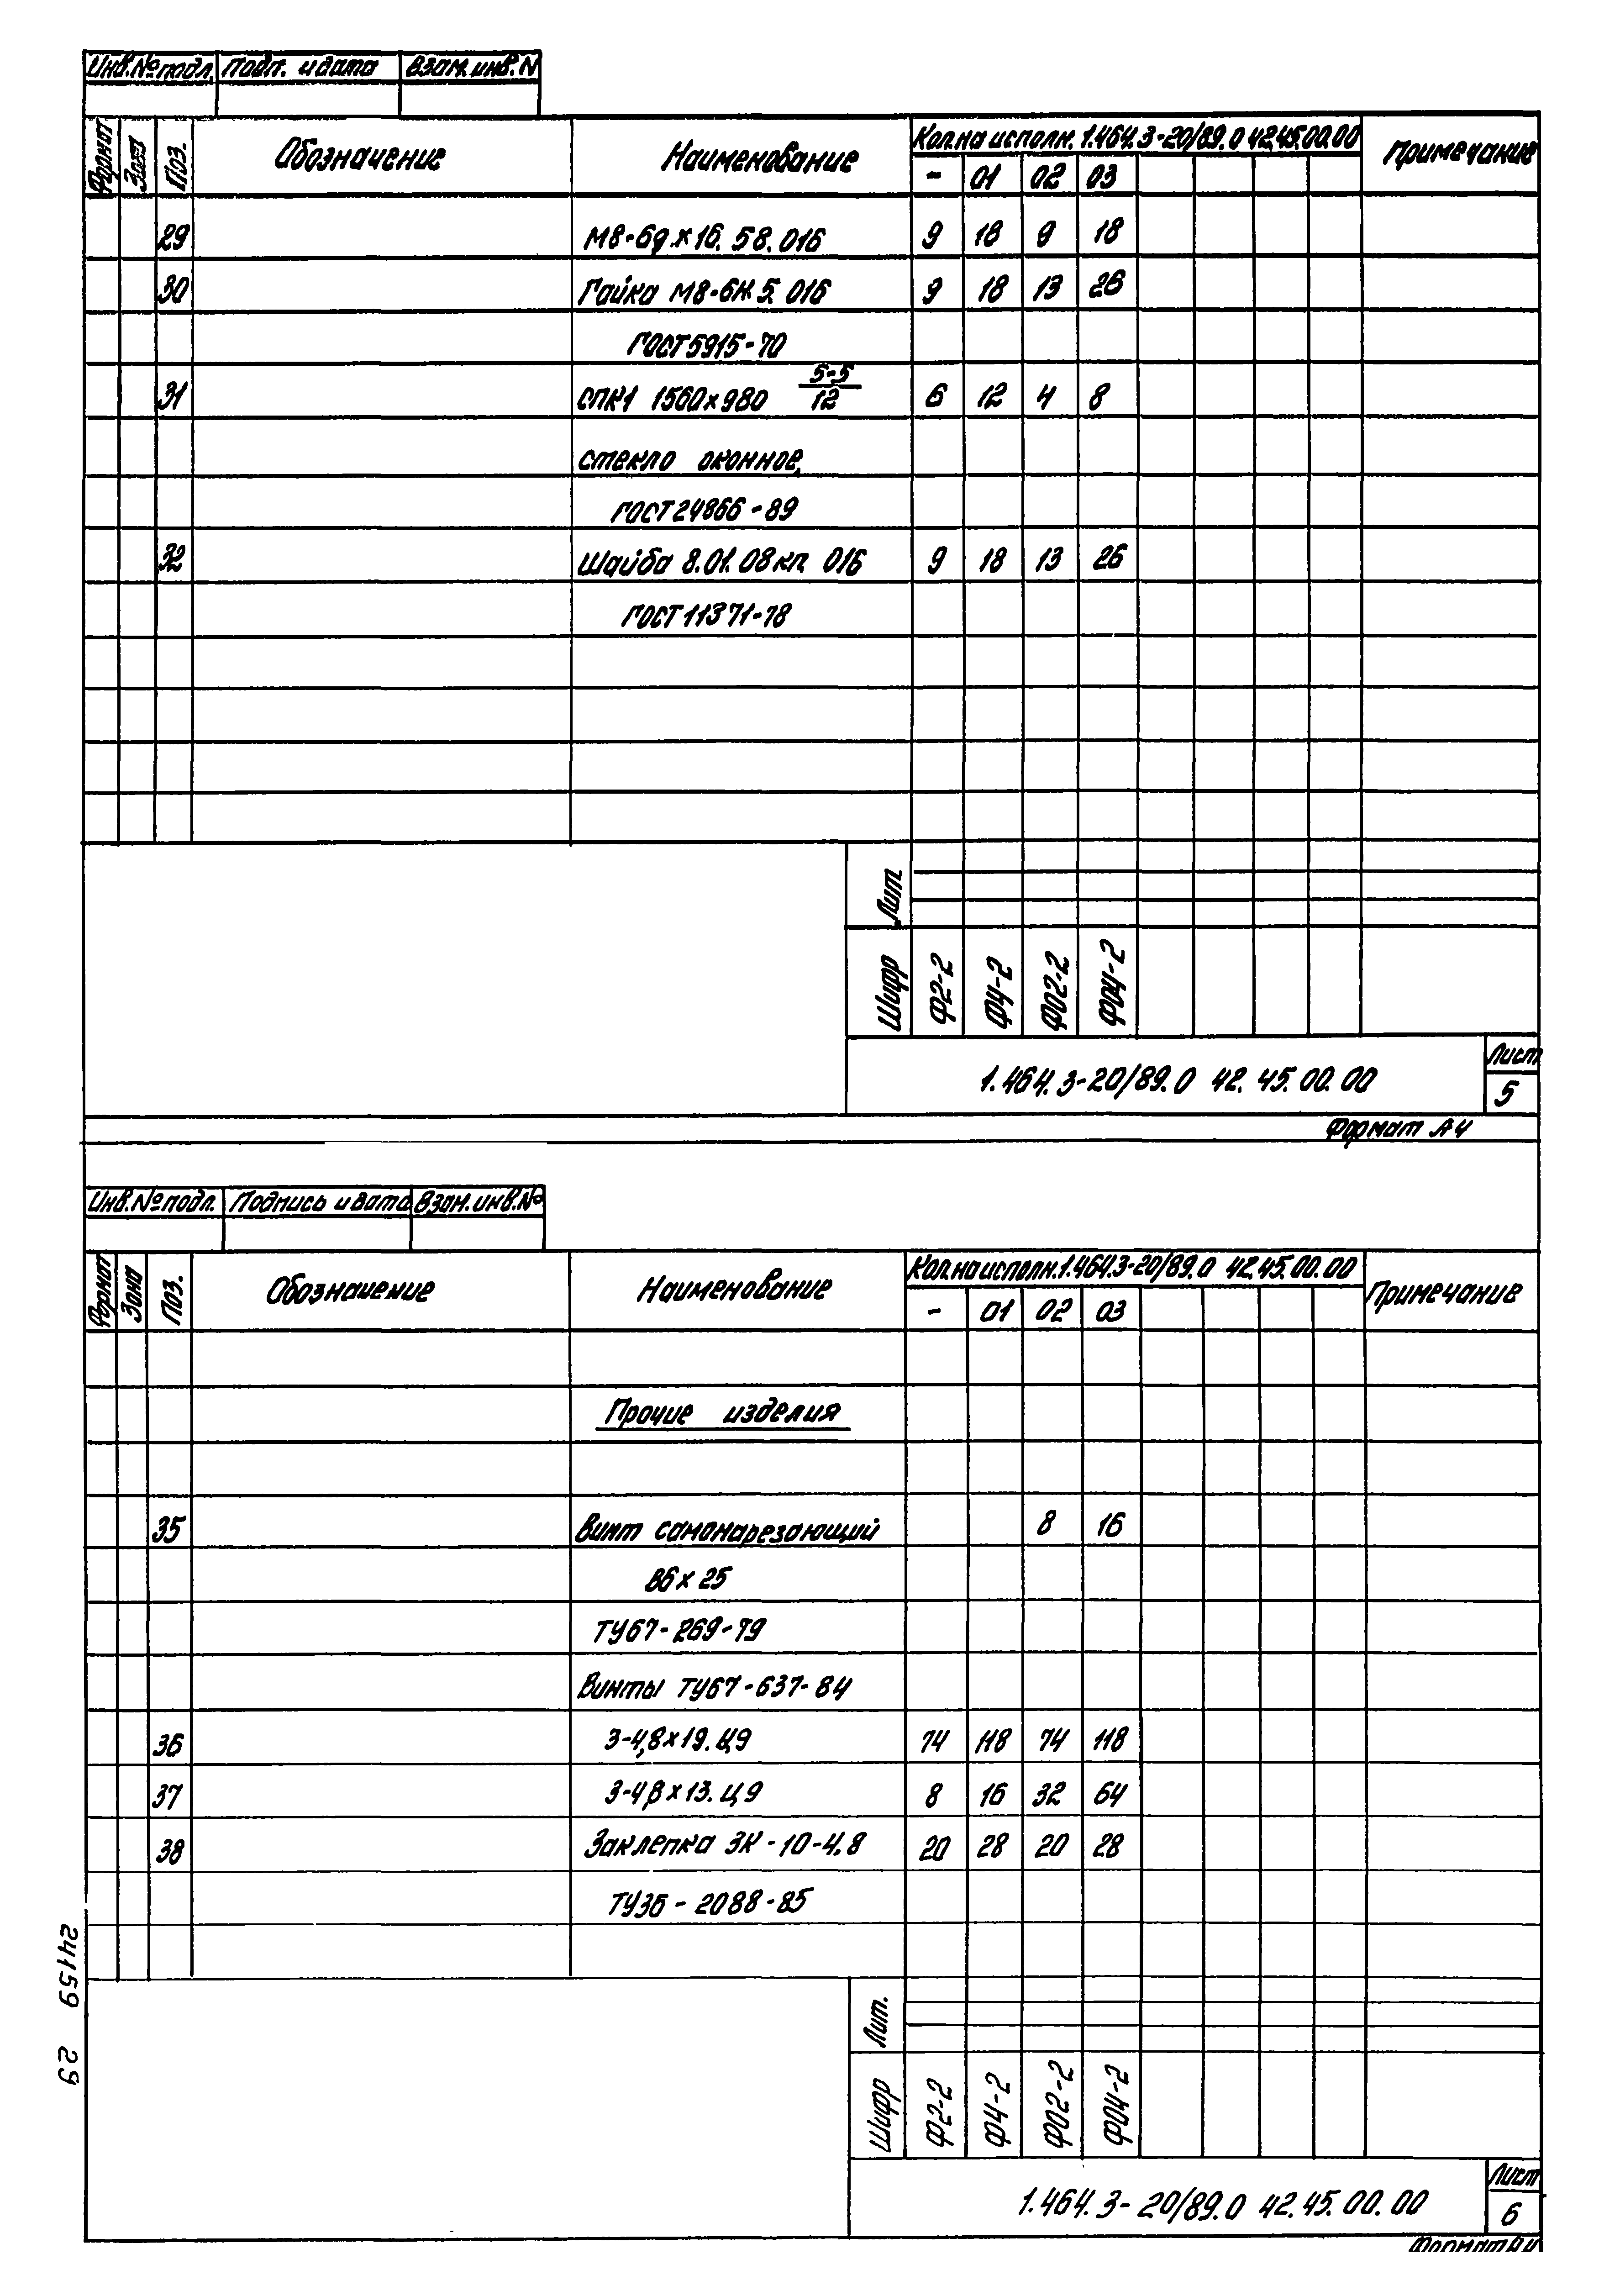 Инв.№подл. Подп. и дата Взам.инв.N
Формат Зона Поз. Обозначение Наименование Кол.на исполн. 1.464.3-20/89.0 42.45.00.00 Примечание
- 01 02 03
29 М8-6g×16.58.016 9 18 9 18
30 Гайка М8-6Н.5.016 9 18 13 26
ГОСТ 5915-70
5-5
31 СПК1 1560×980 12 6 12 4 8
стекло оконное,
ГОСТ 24866-89
32 Шайба 8.01.08кп 016 9 18 13 26
ГОСТ 11371-78
Лит.
Шифр Ф2-2 Ф4-2 Ф02-2 Ф04-2
1.464.3-20/89.0 42.45.00.00 Лист
5
Формат А4
Инв.№подл. Подпись и дата Взам.инв.№
Формат Зона Поз. Обозначение Наименование Кол.на исполн.1.464.3-20/89.0 42.45.00.00 Примечание
- 01 02 03
Прочие изделия
35 Винт самонарезающий 8 16
В6×25
ТУ67-269-79
Винты ТУ67-637-84
36 3-4,8×19.Ц9 74 118 74 118
37 3-4,8×13.Ц9 8 16 32 64
38 Заклепка ЗК-10-4,8 20 28 20 28
ТУ36-2088-85
Лит.
Шифр Ф2-2 Ф4-2 Ф02-2 Ф04-2
1.464.3-20/89.0 42.45.00.00 Лист
6
Формат А4
24159 29